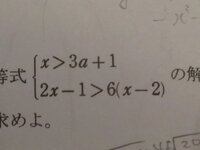 等式 { x>3a+1
2x-1>6(x-2) の解
求めよ。